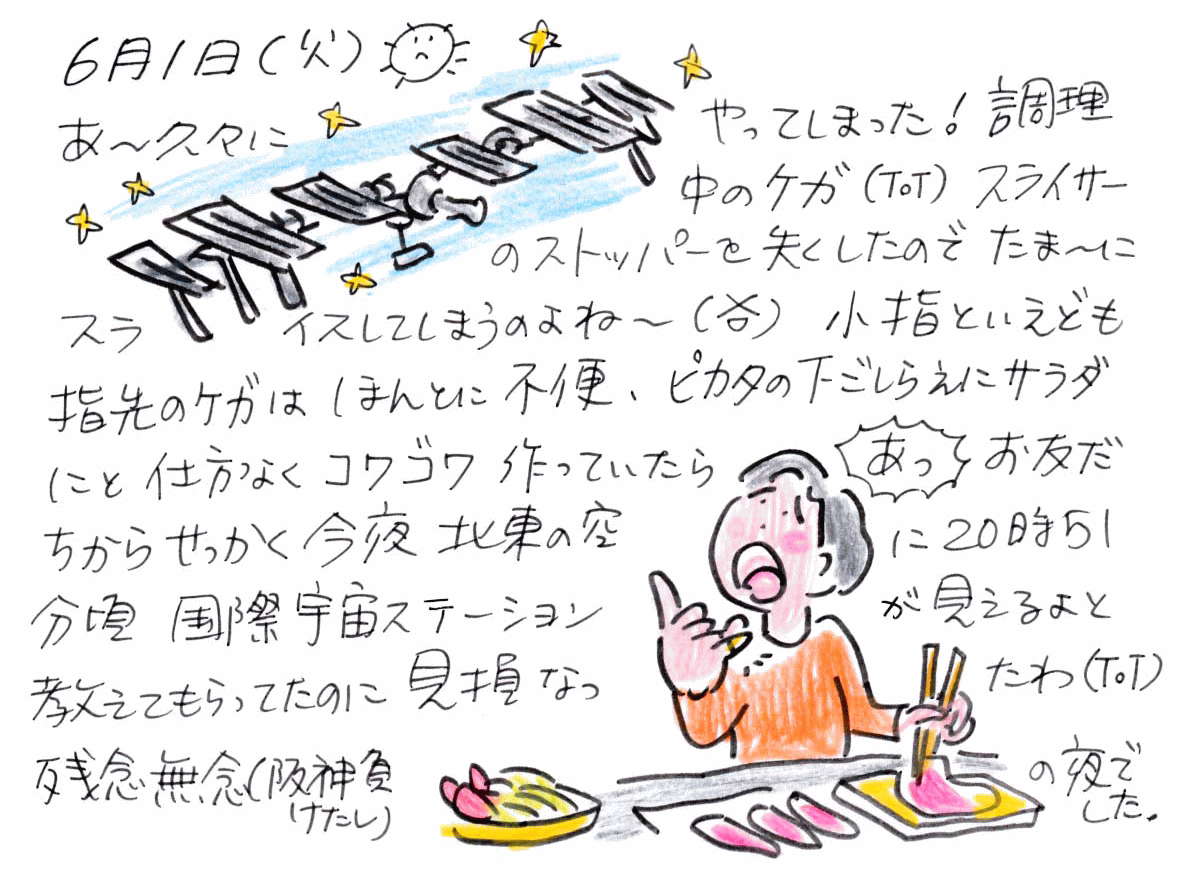 6月1日(火)
あ〜久々に やってしまった！調理
中のケガ(ToT) スライサー
のストッパーを失くしたので たま〜に
スライスしてしまうのよね〜(谷) 小指といえども
指先のケガは ほんとに 不便、ピカタの下ごしらえにサラダ
にと 仕方なく コワゴワ 作っていたら あっ お友だ
ちから せっかく 今夜 北東の空 に20時51
分頃 国際宇宙ステーション が見えるよと
教えてもらってたのに 見損なっ たわ(ToT)
残念無念(阪神負けたし) の夜でした。